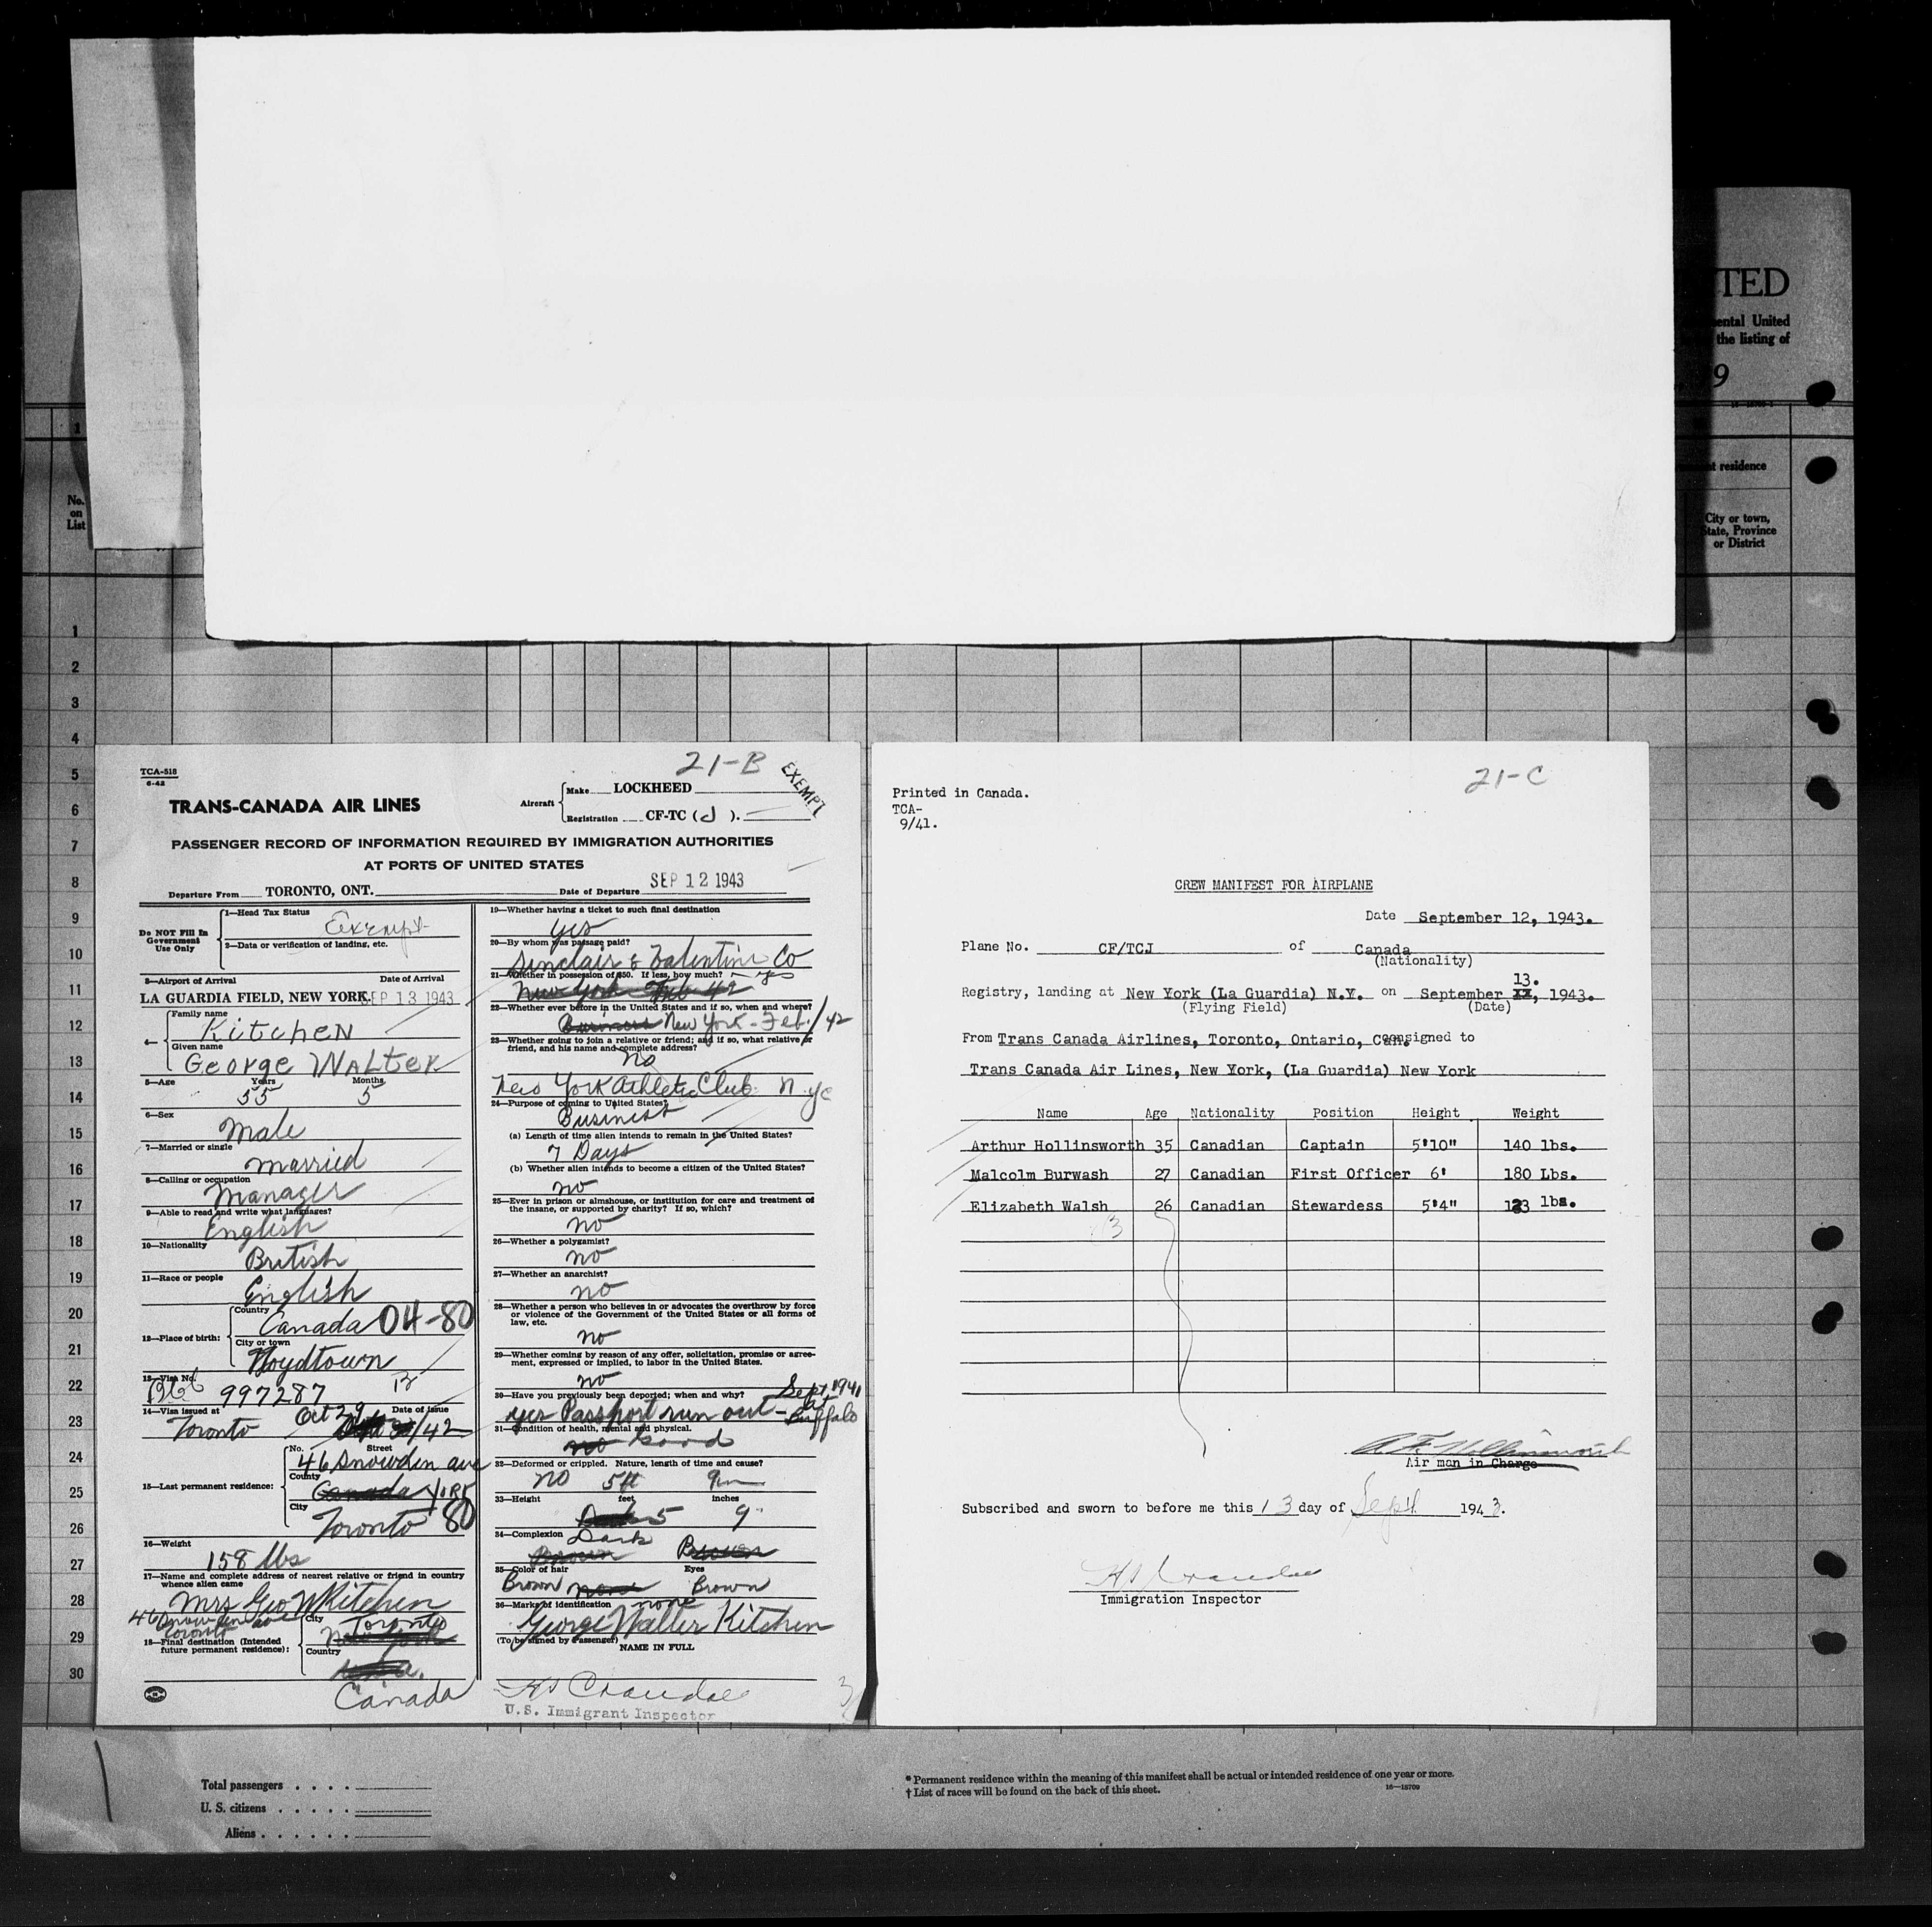 TED
mental United
the listing of
9
1
t residence
No.
on
List
City or town,
State, Province
or District
1
2
3
4
5
6
7
8
9
10
11
12
13
14
15
16
17
18
19
20
21
22
23
24
25
26
27
28
29
30
21-B
EXEMPT
TCA-518
6-42
TRANS-CANADA AIR LINES
Aircraft
Make LOCKHEED
Registration CF-TC (J).
PASSENGER RECORD OF INFORMATION REQUIRED BY IMMIGRATION AUTHORITIES
AT PORTS OF UNITED STATES
Departure From TORONTO, ONT. Date of Departure SEP 12 1943
Do NOT Fill In
Government
Use Only
1—Head Tax Status
Exempt
2—Data or verification of landing, etc.
3—Airport of Arrival Date of Arrival
LA GUARDIA FIELD, NEW YORK. SEP 13 1943
4—
Family name
Kitchen
Given name
George Walter
5—Age Years Months
55 5
6—Sex
Male
7—Married or single
Married
8—Calling or occupation
Manager
9—Able to read and write what languages?
English
10—Nationality
British
11—Race or people
English
12—Place of birth:
Country
Canada 04-80
City or town
Floydtown
13—Visa No.
997287
14—Visa issued at Date of issue
Toronto Oct 29/42
15—Last permanent residence:
No. Street
46 Snowden ave
County
Canada York
City
Toronto 80
16—Weight
158 lbs
17—Name and complete address of nearest relative or friend in country
whence alien came
Mrs Geo W Kitchen
46 Snowden ave
Toronto
18—Final destination (Intended
future permanent residence):
City
Toronto
New York
Country
Canada
19—Whether having a ticket to such final destination
yes
20—By whom was passage paid?
Sinclair & Valentine Co
21—Whether in possession of $50. If less, how much? - yes
New York Feb 42
22—Whether ever before in the United States and if so, when and where?
Business New York - Feb/42
23—Whether going to join a relative or friend; and if so, what relative or
friend, and his name and complete address?
no
New York Athletic Club. N.Y.C
24—Purpose of coming to United States?
Business
(a) Length of time alien intends to remain in the United States?
7 Days
(b) Whether alien intends to become a citizen of the United States?
no
25—Ever in prison or almshouse, or institution for care and treatment of
the insane, or supported by charity? If so, which?
no
26—Whether a polygamist?
no
27—Whether an anarchist?
no
28—Whether a person who believes in or advocates the overthrow by force
or violence of the Government of the United States or all forms of
law, etc.
no
29—Whether coming by reason of any offer, solicitation, promise or agree-
ment, expressed or implied, to labor in the United States.
no
30—Have you previously been deported; when and why?
yes Passport run out - Sept 1941 at Buffalo
31—Condition of health, mental and physical.
no Good
32—Deformed or crippled. Nature, length of time and cause?
no 5ft 9in
33—Height feet inches
5 9
34—Complexion
Dark
Brown Brown
35—Color of hair Eyes
Brown Brown
36—Marks of identification none
George Walter Kitchen
(To be signed by Passenger)
NAME IN FULL
U.S. Immigrant Inspector
21-C
Printed in Canada.
TCA-
9/41.
CREW MANIFEST FOR AIRPLANE
Date September 12, 1943.
Plane No. CF/TCJ of Canada
(Nationality)
13.
Registry, landing at New York (La Guardia) N.Y. on September XX, 1943.
(Flying Field) (Date)
From Trans Canada Airlines, Toronto, Ontario, Can. consigned to
Trans Canada Air Lines, New York, (La Guardia) New York
Name Age Nationality Position Height Weight
Arthur Hollinsworth 35 Canadian Captain 5'10" 140 lbs.
Malcolm Burwash 27 Canadian First Officer 6' 180 Lbs.
Elizabeth Walsh 26 Canadian Stewardess 5'4" 123 lbs.
Air man in Charge
Subscribed and sworn to before me this 13 day of Sept 1943.
Immigration Inspector
Total passengers . . . .
U. S. citizens . . . . .
Aliens . . . . . .
* Permanent residence within the meaning of this manifest shall be actual or intended residence of one year or more.
† List of races will be found on the back of this sheet.
16—18709